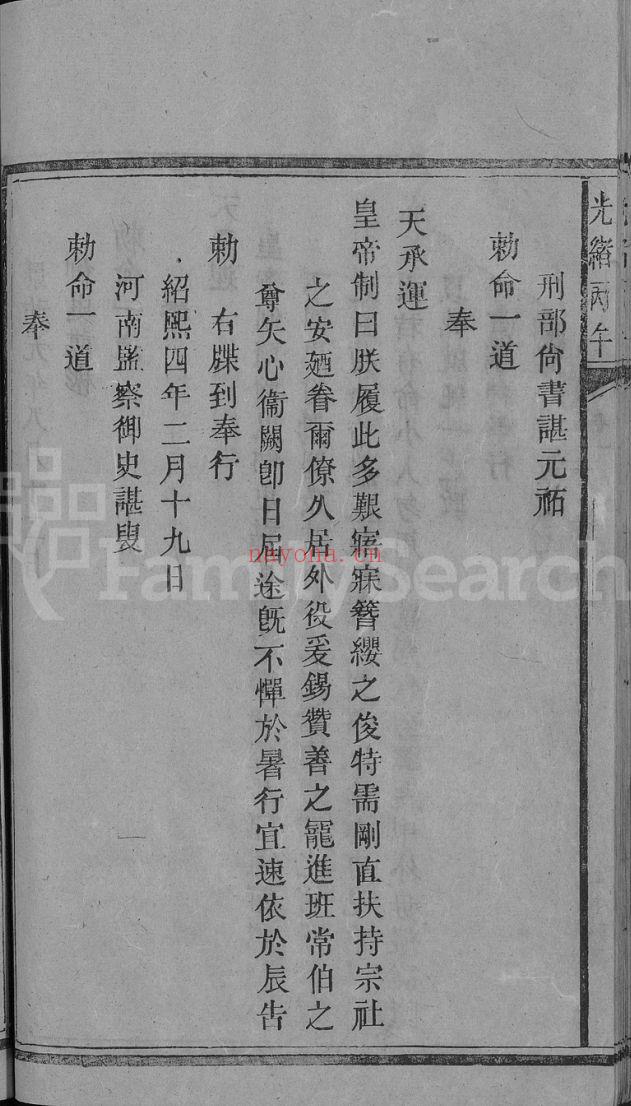 光緒丙午
刑部尙書諶元祐
勅命一道
奉
天承運
皇帝制曰朕履此多艱寤寐簪纓之俊特需剛直扶持宗社
之安廼眷爾僚久居外役爰錫贊善之寵進班常伯之
尊矢心衞闕卽日戹途旣不憚於暑行宜速依於辰告
勅右牒到奉行
紹熙四年二月十九日
河南監察御史諶叟
勅命一道
奉
FamilySearch
nayona.cn